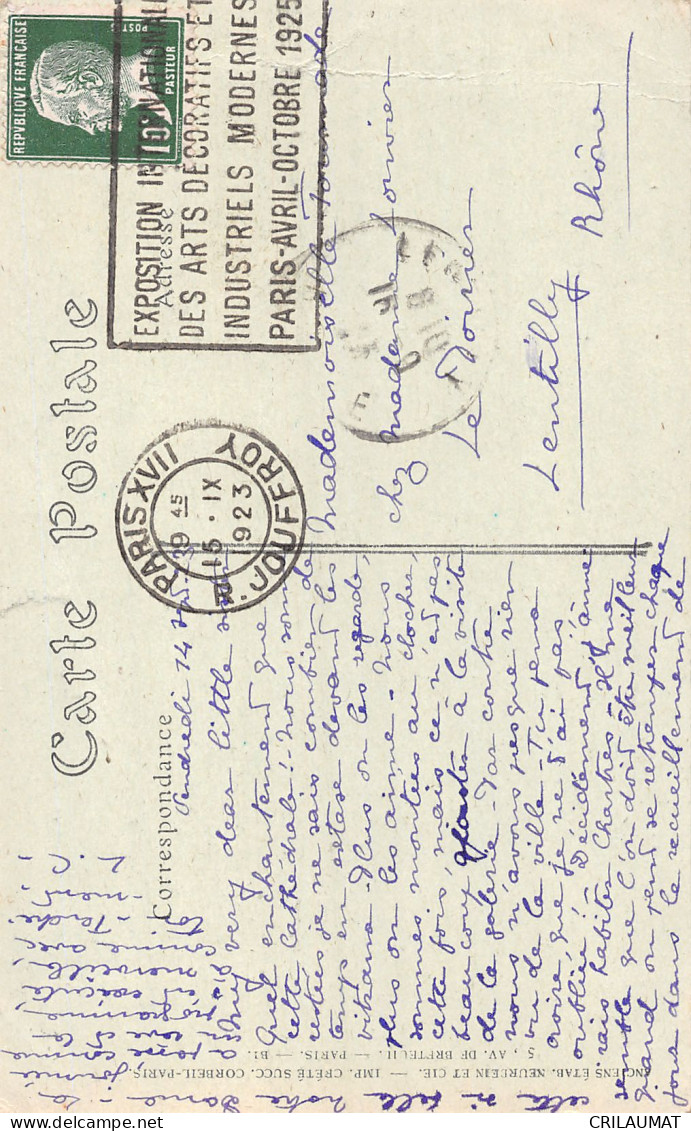 Carte Postale
Correspondance
Adresse
REPUBLIQUE FRANÇAISE
POSTES
PASTEUR
10c
EXPOSITION INTERNATIONALE
DES ARTS DECORATIFS ET
INDUSTRIELS MODERNES
PARIS-AVRIL-OCTOBRE 1925
PARIS XVII
9 45
15 · IX
1923
R. JOUFFROY
Mademoiselle
chez Madame
Le Poirier
Lentilly
Rhône
Vendredi 14
My very dear little
Quel enchantement que
cette Cathédrale! - Nous sommes
restées je ne sais combien de
temps en extase devant les
vitraux - Plus on les regarde,
plus on les aime - Nous
sommes montées au clocher,
cette fois, mais ce n'est pas
beaucoup ajouter à la visite
de la galerie - Par contre
nous n'avons presque rien
vu de la ville - Tu peux
croire que je ne t'ai pas
oubliée! - Décidément j'aime-
rais habiter Chartres - Il me
semble que l'on doit être meilleur
quand on peut se retremper chaque
jour dans le recueillement de
cette si belle Notre Dame - La
journée
a passé comme
un rêve et le
programme,
s'est exécuté
à merveille,
comme avec
toi - Tendre-
-ment,
L. C.
ANCIENS ETAB. NEURDEIN ET CIE. — IMP. CRÉTÉ SUCC. CORBEIL-PARIS
5, AV. DE BRETEUIL — PARIS. — B1.
CRILAUMAT